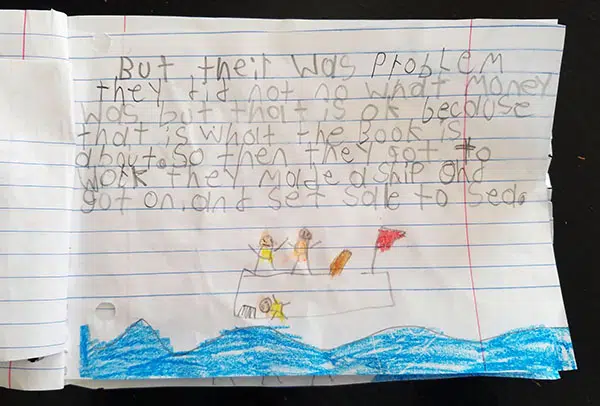 But their was problem
they did not no what money
was but that is ok because
that is what the Book is
about. So then they got to
work they made a ship and
got on. and set sale to sea.